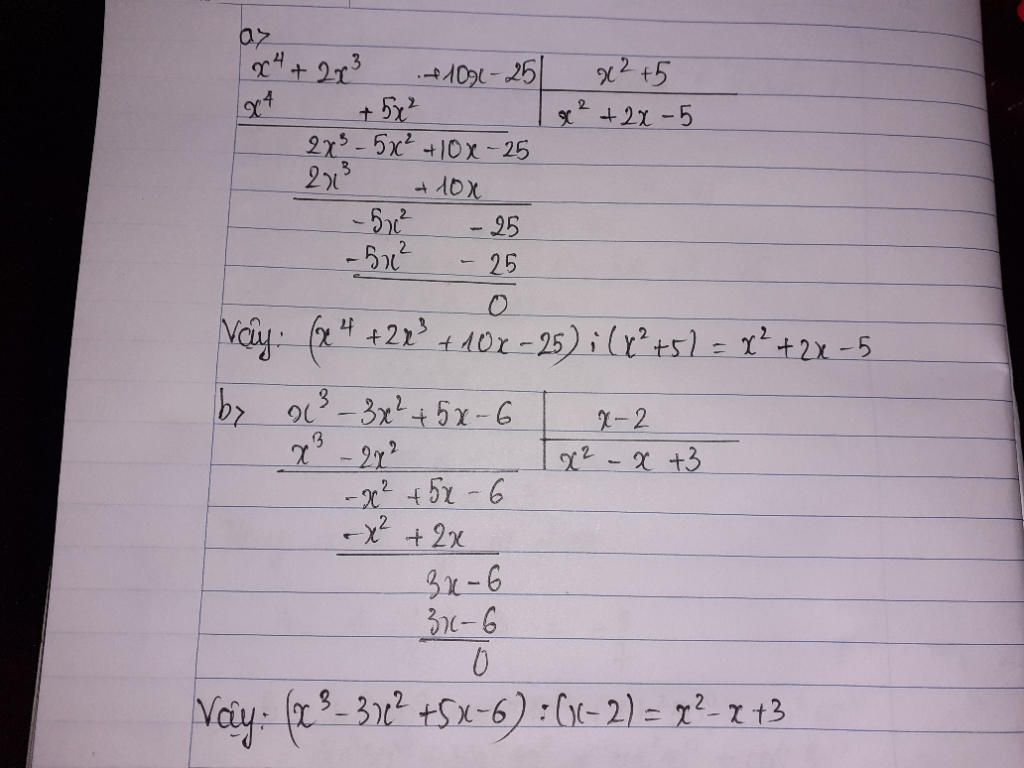 a>
x⁴ + 2x³ + 10x - 25 | x² + 5
x⁴ + 5x² | x² + 2x - 5
2x³ - 5x² + 10x - 25
2x³ + 10x
- 5x² - 25
- 5x² - 25
0
Vậy: (x⁴ + 2x³ + 10x - 25) : (x² + 5) = x² + 2x - 5
b> x³ - 3x² + 5x - 6 | x - 2
x³ - 2x² | x² - x + 3
- x² + 5x - 6
- x² + 2x
3x - 6
3x - 6
0
Vậy: (x³ - 3x² + 5x - 6) : (x - 2) = x² - x + 3